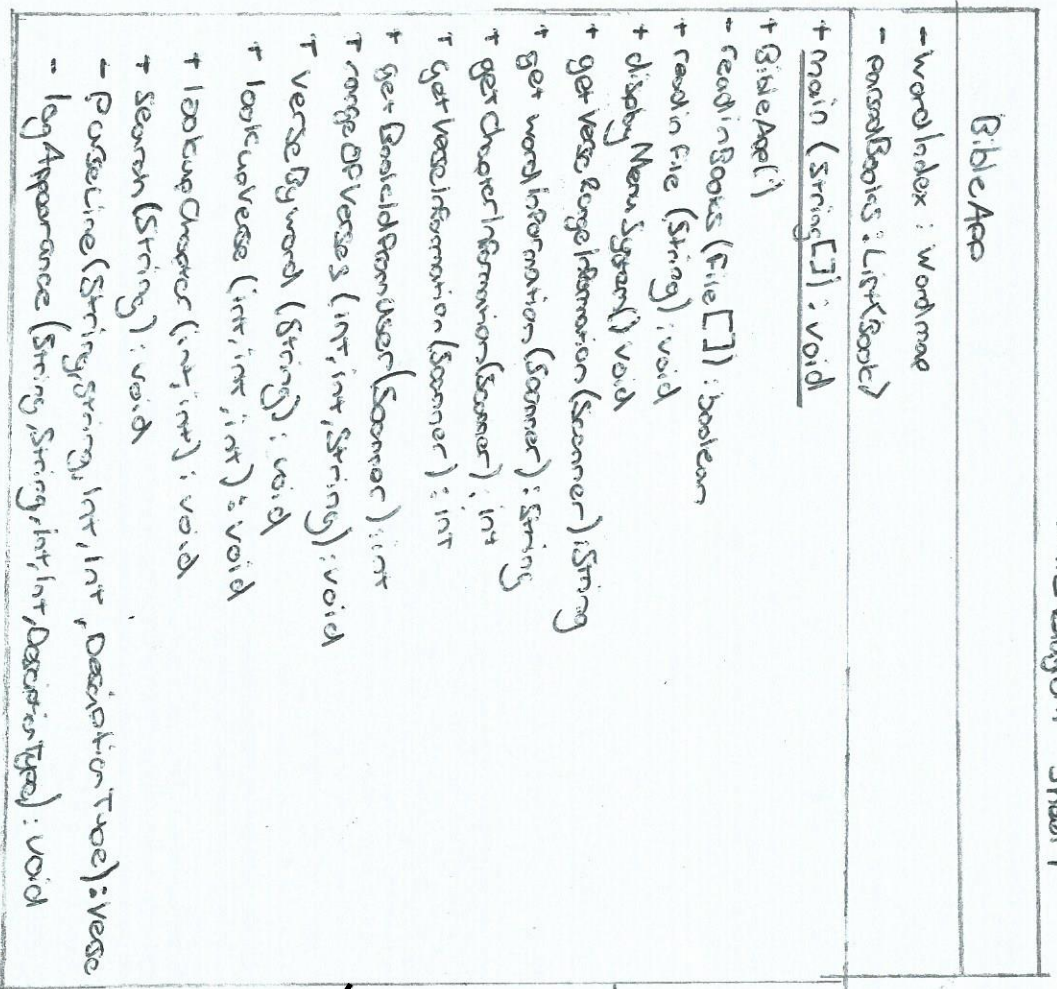 BibleApp
- wordIndex : wordmap
- parsedBooks : List<Book>
+ main (String[]) : void
+ BibleApp()
- readinBooks (File[]) : boolean
+ readinfile (String) : void
+ display Menu System() void
+ getVerseRangeInformation (Scanner) : String
+ get wordinformation (Scanner) : String
+ getChapterInformation (Scanner) : int
+ getVerseinformation (Scanner) : int
+ getBookIdfromUser (Scanner) : int
+ rangeOfVerses (int, int, String) : void
+ verseByword (String) : void
+ lookupVerse (int, int, int) : void
+ lookupChapter (int, int) : void
+ search (String) : void
- ParseLine (String, String, Int, Int, DescriptionType) : Verse
- logAppearance (String, String, Int, Int, DescriptionType) : void